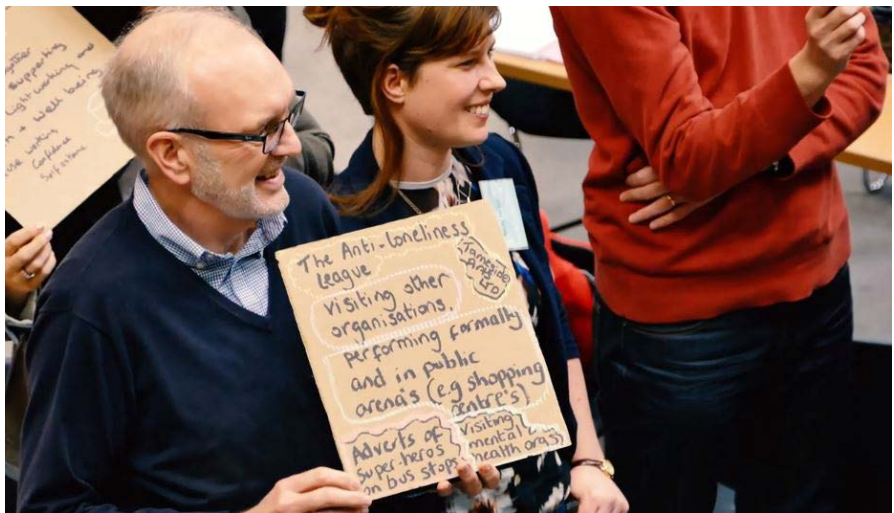 supporting
working and
well being
working
Confidence
The Anti-loneliness
league
Tameside
LTD
visiting other
organisations.
performing formally
and in public
arena's (e.g shopping
centre's)
Adverts of
super-heros
on bus stops
visiting
mental
health orgs)